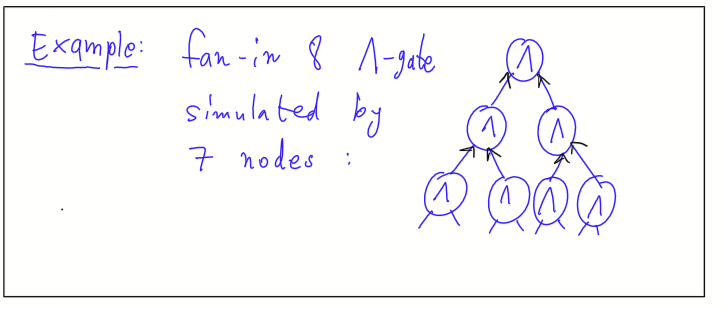 Example: fan-in 8 Λ-gate
simulated by
7 nodes :
Λ
Λ Λ
Λ Λ Λ Λ